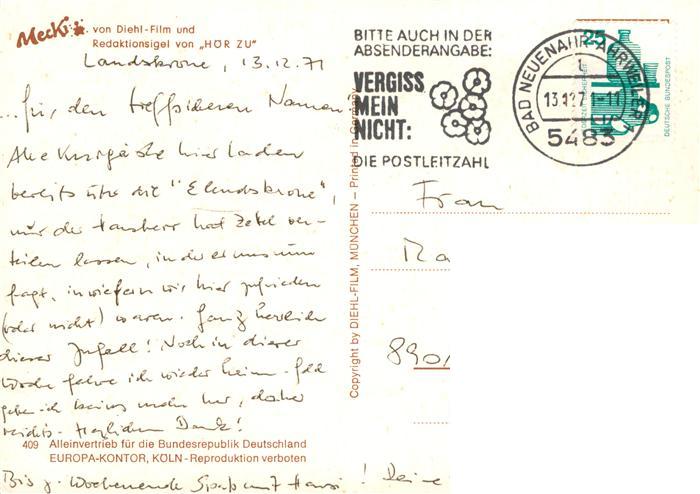 Mecki von Diehl-Film und
Redaktionsigel von „HÖR ZU"
Landskrone, 13.12.71
...für den treffsicheren Namen
Alle Kurgäste hier laden
bereits über die "Elendskrone",
nur der Hausherr hat Zettel ver-
teilen lassen, in der er uns um
fragt, inwiefern wir hier zufrieden
(oder nicht) waren. Ganz herrlich
dieser Zufall! Noch in dieser
Woche fahre ich wieder heim. Geld
gebe ich keins mehr her, daher
nichts. Herzlichen Dank!
409 Alleinvertrieb für die Bundesrepublik Deutschland
EUROPA-KONTOR, KÖLN - Reproduktion verboten
Bis z. Wochenende Spaß mit Hansi! Deine
Copyright by DIEHL-FILM, MÜNCHEN – Printed in Germany
BITTE AUCH IN DER
ABSENDERANGABE:
VERGISS
MEIN
NICHT:
DIE POSTLEITZAHL
BAD NEUENAHR-AHRWEILER 1
13.12.71-11
5483
25
DEUTSCHE BUNDESPOST
Frau
Ma
8901